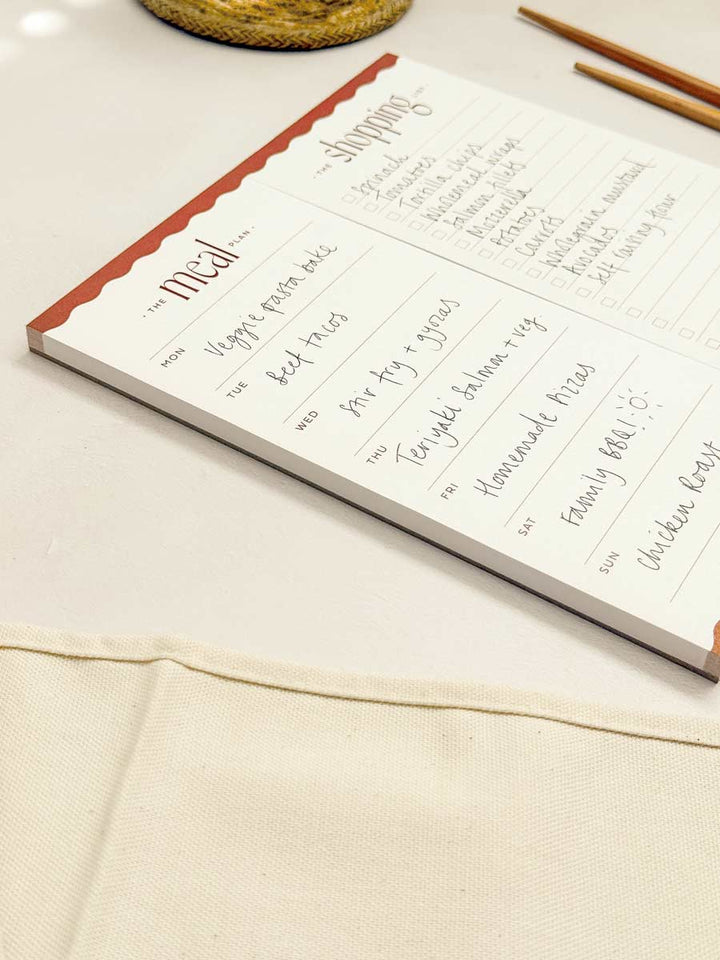 · THE meal PLAN ·
MON Veggie pasta bake
TUE Beef tacos
WED Stir fry + gyozas
THU Teriyaki Salmon + veg
FRI Homemade Pizzas
SAT Family BBQ!
SUN Chicken Roast
· THE shopping LIST ·
Spinach
Tomatoes
Tortilla chips
Wholemeal wraps
Salmon fillets
Mozzerella
Potatoes
Carrots
Wholegrain mustard
Avocados
Self raising flour